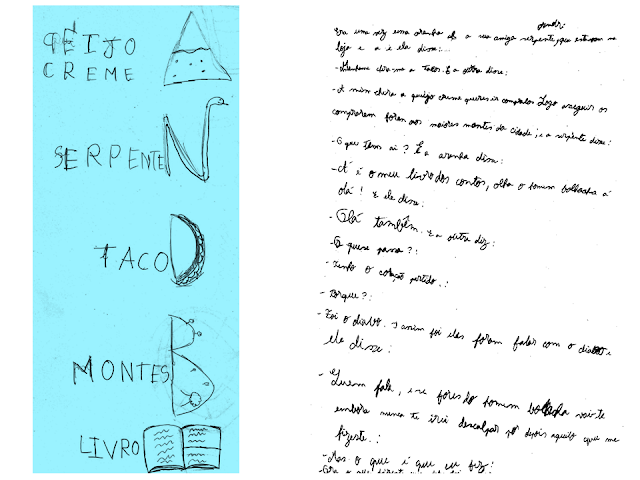 QEIJO
CREME
SERPENTE
TACO
MONTES
LIVRO
Era uma vez uma aranha e a sua amiga serpente, que estavam na
loja e a ela disse:
- cheira-me a Taco. E a outra disse:
- A mim cheira a queijo creme queres ir compralos Logo a seguir os
comprarem foram aos maiores montes da cidade; e a serpente disse:
- O que tem ai? E a aranha disse:
- A é o meu livro dos contos, olha o homem bolhacha á
olá! E ele disse:
- Olá também. E a outra diz:
- O que se passa?:
- Tenho o coração partido.:
- Porque?:
- Foi o diabo. I asim foi elas foram falar com o diabo e
ele disse:
- fala, e se fores do homem vai-te
embora nunca te irei desculpar por depois aquilo que me
fizeste.:
- Mas o que é que eu fiz: